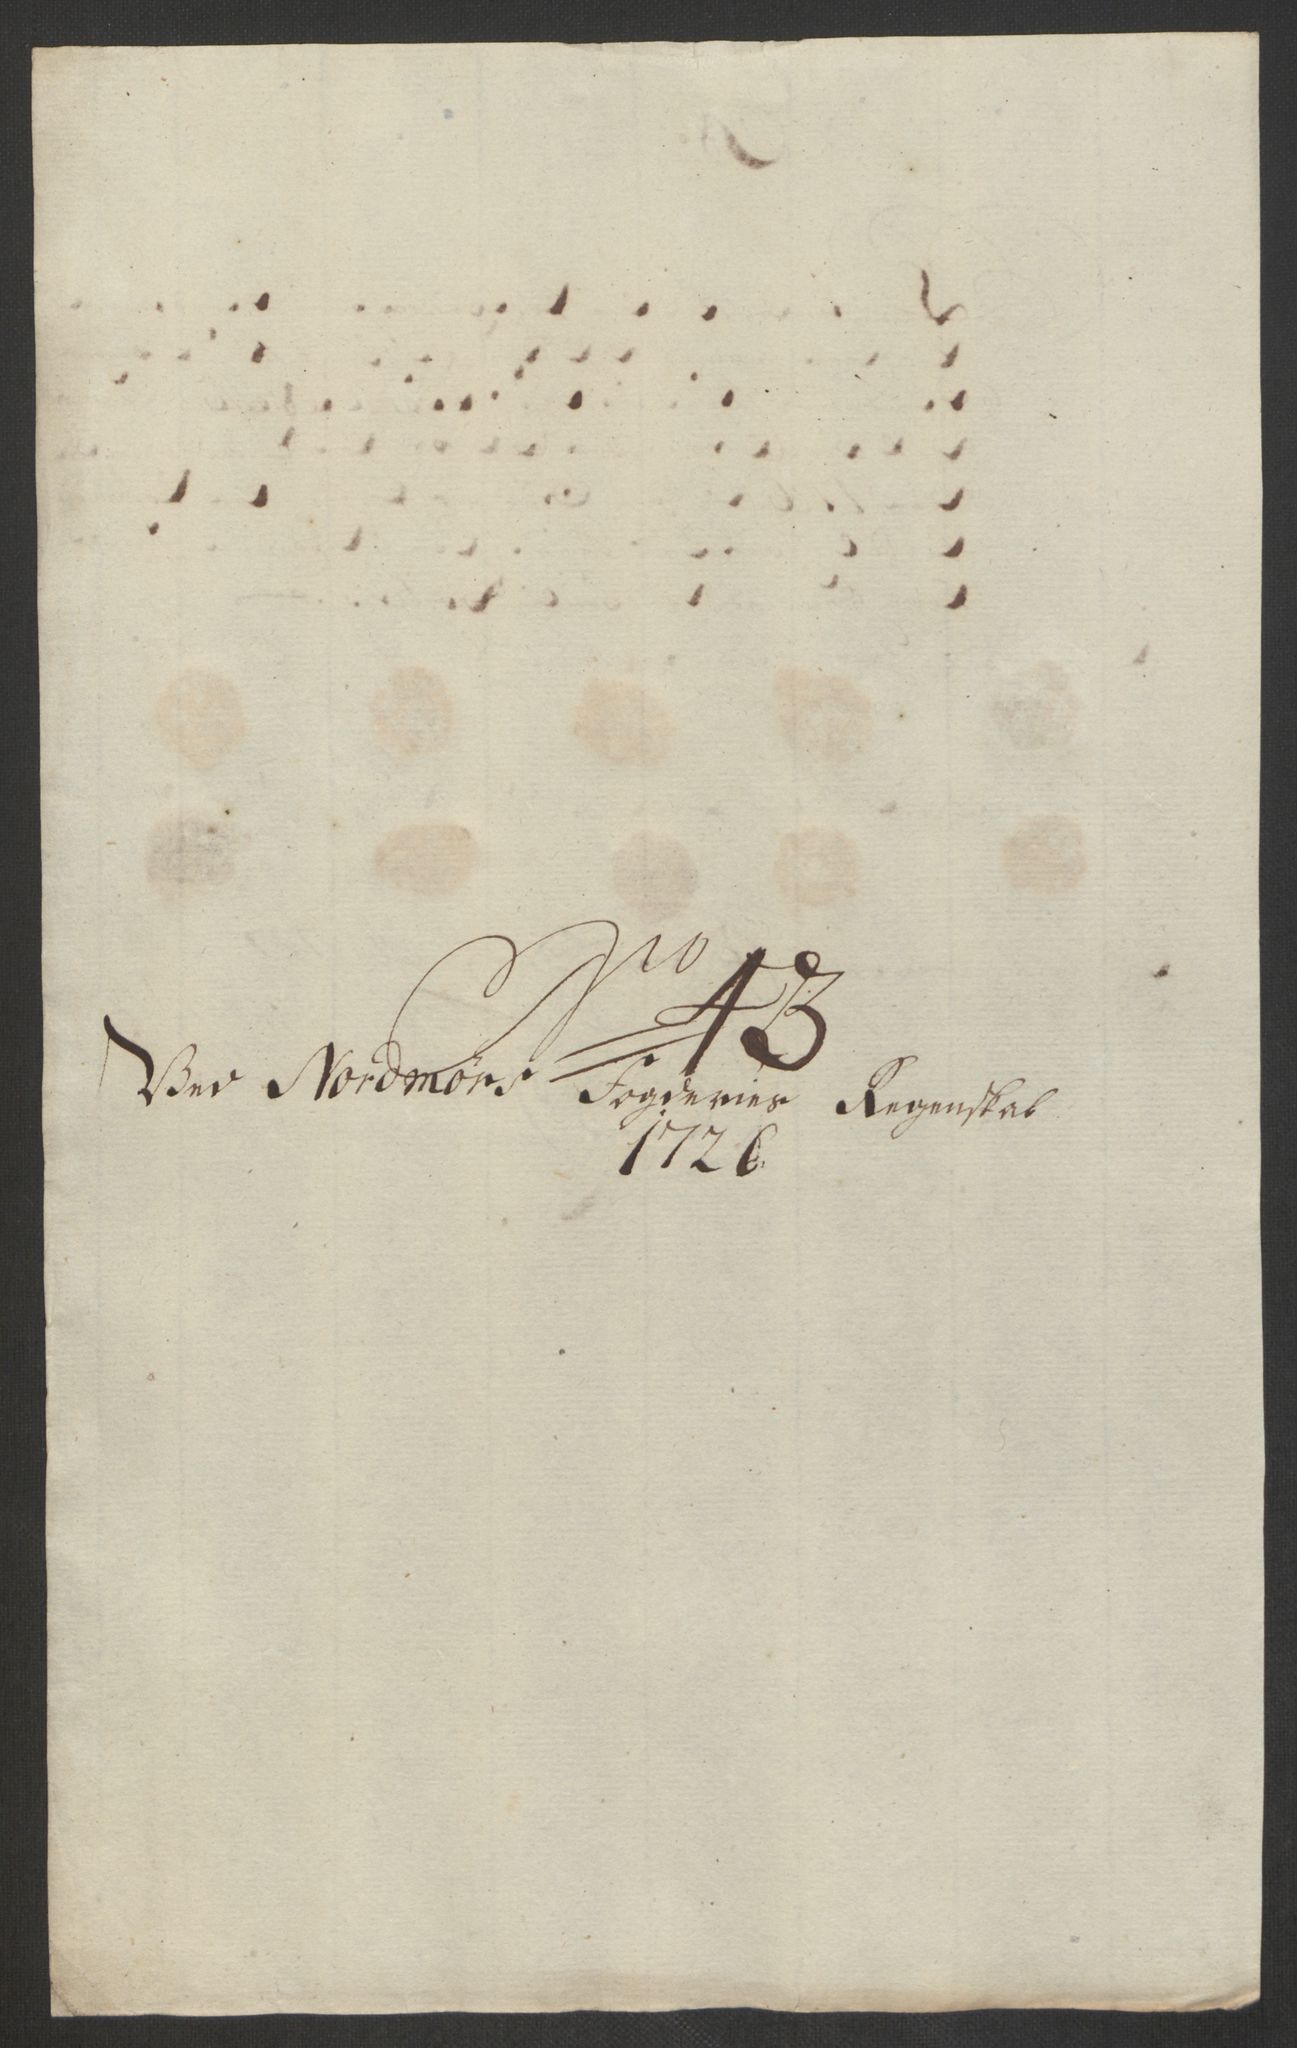 No 43
Ved Nordmørs Fogderies Regenskab
1726